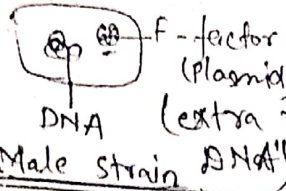 F-factor
(Plasmid
DNA (extra
Male strain DNA"